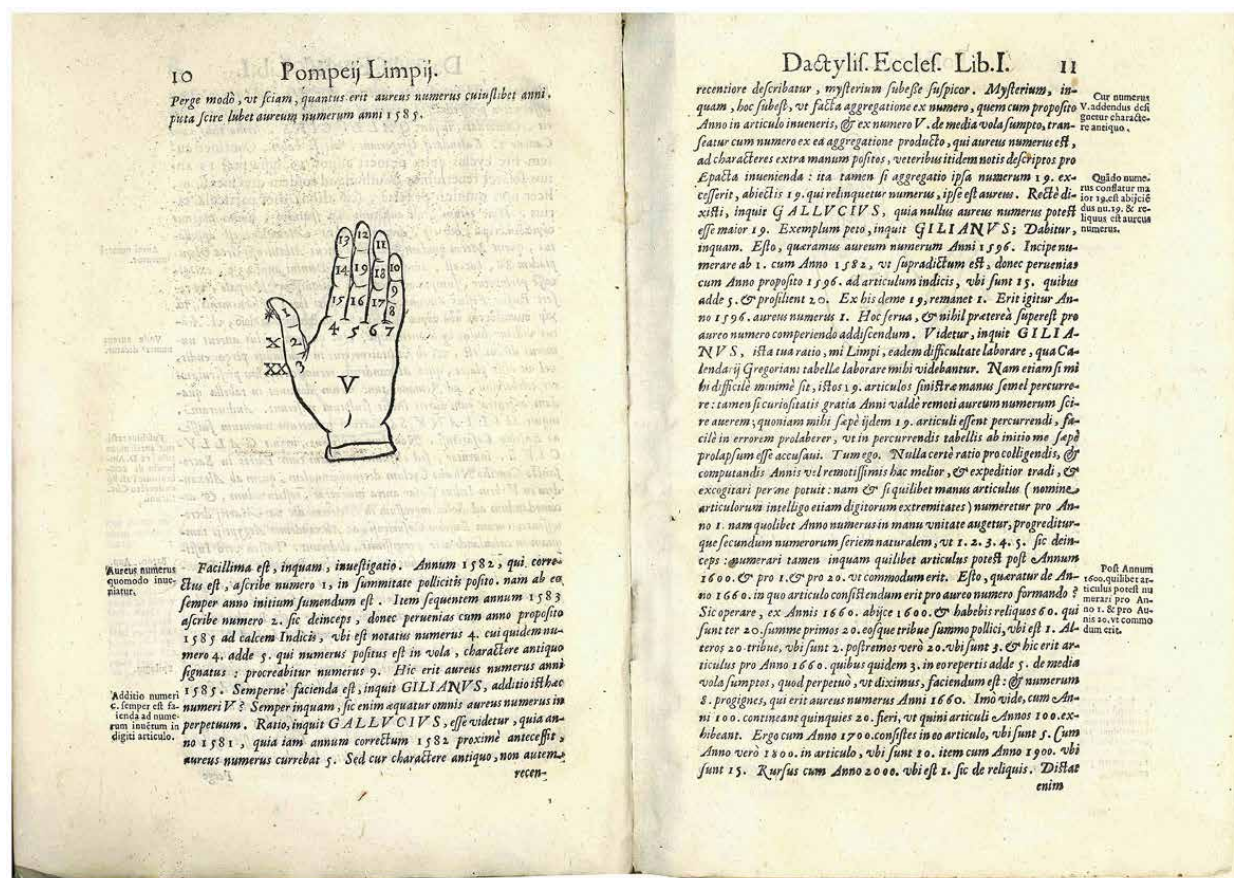 10 Pompeij Limpij.
Perge modò, vt sciam, quantus erit aureus numerus cuiuslibet anni,
puta scire lubet aureum numerum anni 1585.
13 12 11
14 19 18 10
15 16 17 9
8
4 5 6 7
* 1
X 2
XX 3
V
Aureus numerus
quomodo inue-
niatur.
Facillima est, inquam, inuestigatio. Annum 1582, qui corre-
ctus est, ascribe numero 1, in summitate pollicitis posito. nam ab eo
semper anno initium sumendum est. Item sequentem annum 1583
ascribe numero 2. sic deinceps, donec peruenias cum anno proposito
1585 ad calcem Indicis, vbi est notatus numerus 4. cui quidem nu-
mero 4. adde 5. qui numerus positus est in vola, charactere antiquo
signatus: procreabitur numerus 9. Hic erit aureus numerus anni
1585. Semperne facienda est, inquit GILIANVS, additio isthæc
numeri V? Semper inquam, sic enim æquatur omnis aureus numerus in
perpetuum. Ratio, inquit GALLVCIVS, esse videtur, quia an-
no 1581, quia iam annum correctum 1582 proximè antecessit,
aureus numerus currebat 5. Sed cur charactere antiquo, non autem
recen-
Additio numeri
5. semper est fa-
cienda ad nume-
rum inuētum in
digiti articulo.
Dactylis. Eccles. Lib.I. 11
recentiore describatur, mysterium subesse suspicor. Mysterium, in-
quam, hoc subest, vt facta aggregatione ex numero, quem cum proposito
Anno in articulo inueneris, & ex numero V. de media vola sumpto, tran-
seatur cum numero ex ea aggregatione producto, qui aureus numerus est,
ad characteres extra manum positos, veteribus itidem notis descriptos pro
Epacta inuenienda: ita tamen si aggregatio ipsa numerum 19. ex-
cesserit, abiectis 19. qui relinquetur numerus, ipse est aureus. Rectè di-
xisti, inquit GALLVCIVS, quia nullus aureus numerus potest
esse maior 19. Exemplum peto, inquit GILIANVS; Dabitur,
inquam. Esto, quæramus aureum numerum Anni 1596. Incipe nu-
merare ab 1. cum Anno 1582, vt supradictum est, donec peruenias
cum Anno proposito 1596. ad articulum indicis, vbi sunt 15. quibus
adde 5. & prosilient 20. Ex his deme 19, remanet 1. Erit igitur An-
no 1596. aureus numerus 1. Hoc serua, & nihil prætereà superest pro
aureo numero comperiendo addiscendum. Videtur, inquit GILIA-
NVS, ista tua ratio, mi Limpi, eadem difficultate laborare, qua Ca-
lendarij Gregoriani tabellæ laborare mihi videbantur. Nam etiam si mi
hi difficilè minimè sit, istos 19. articulos sinistræ manus semel percurre-
re: tamen si curiositatis gratia Anni valdè remoti aureum numerum sci-
re auerem; quoniam mihi sæpè ijdem 19. articuli essent percurrendi, fa-
cilè in errorem prolaberer, vt in percurrendis tabellis ab initio me sæpè
prolapsum esse accusaui. Tum ego. Nulla certè ratio pro colligendis, &
computandis Annis vel remotissimis hac melior, & expeditior tradi, &
excogitari penè potuit: nam & si quilibet manus articulus (nomine
articulorum intelligo etiam digitorum extremitates) numeretur pro An-
no 1. nam quolibet Anno numerus in manu vnitate augetur, progreditur-
que secundum numerorum seriem naturalem, vt 1. 2. 3. 4. 5. sic dein-
ceps: numerari tamen inquam quilibet articulus potest post Annum
1600. & pro 1. & pro 20. vt commodum erit. Esto, quæratur de An-
no 1660. in quo articulo consistendum erit pro aureo numero formando?
Sic operare, ex Annis 1660. abijce 1600. & habebis reliquos 60. qui
sunt ter 20. summe primos 20. eosque tribue summo pollici, vbi est 1. Al-
teros 20 tribue, vbi sunt 2. postremos verò 20. vbi sunt 3. & hic erit ar-
ticulus pro Anno 1660. quibus quidem 3. in eo repertis adde 5. de media
vola sumptos, quod perpetuò, vt diximus, faciendum est: & numerum
8. progignes, qui erit aureus Anni 1660. Imò vide, cum An-
ni 100. contineant quinquies 20. fieri, vt quini articuli Annos 100. ex-
hibeant. Ergo cum Anno 1700. consistes in eo articulo, vbi sunt 5. Cum
Anno verò 1800. in articulo, vbi sunt 10. item cum Anno 1900. vbi
sunt 15. Rursus cum Anno 2000. vbi est 1. sic de reliquis. Dictat
enim
Cur numerus
V. addendus desi
gnetur characte-
re antiquo.
Quādo nume-
rus conflatur ma
ior 19. est abijciē
dus nu. 19. & re-
liquus est aureus
numerus.
Post Annum
1600. quilibet ar-
ticulus potest nu
merari pro An-
no 1. & pro An-
nis 20. vt commo
dum erit.